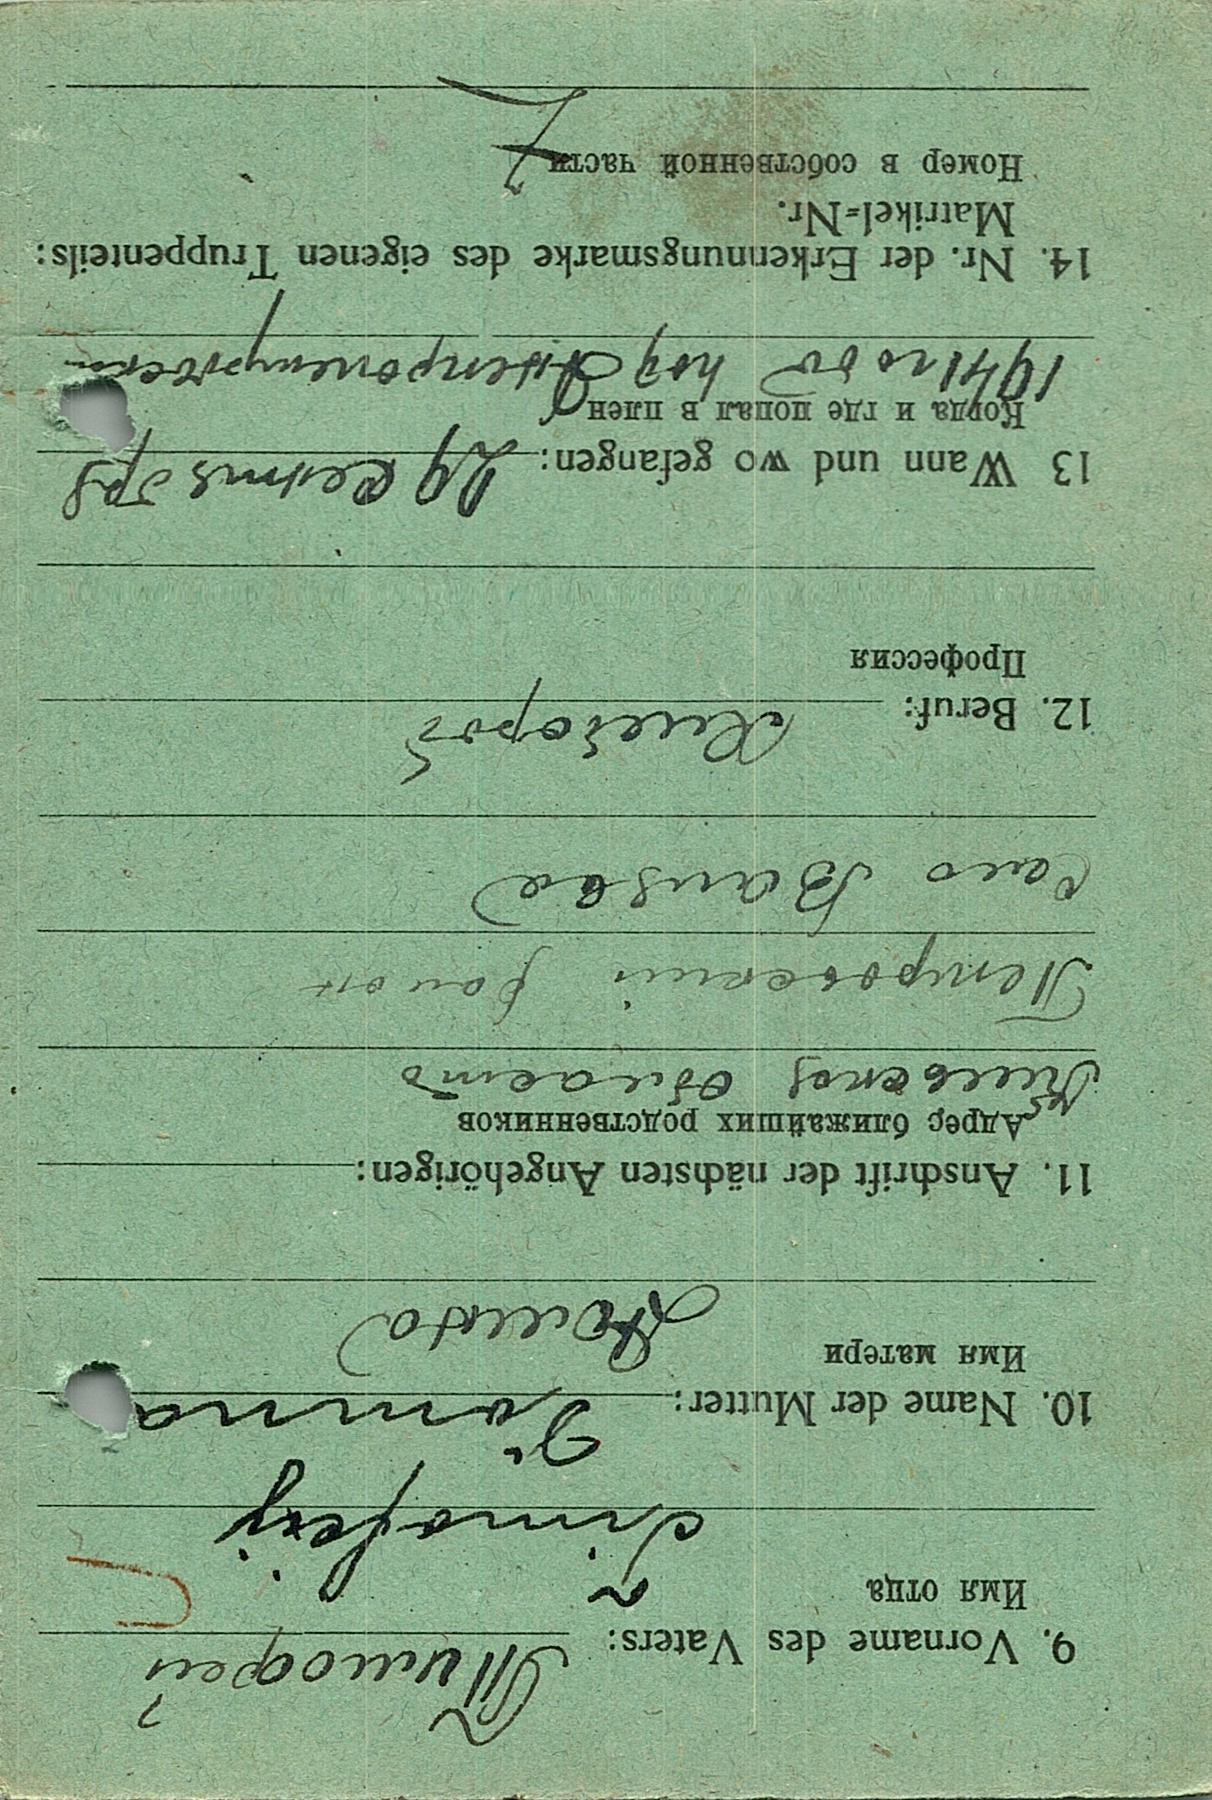 9. Vorname des Vaters: Тимофей
Имя отца
Timofeij
10. Name der Mutter: Домна
Имя матери
Домна
11. Anschrift der nächsten Angehörigen:
Адрес ближайших родственников
область
Петровский район
Село
12. Beruf:
Профессия
13 Wann und wo gefangen: 29 сентября
Когда и где попал в плен
1941 году под Днепропетровском
14. Nr. der Erkennungsmarke des eigenen Truppenteils:
Matrikel-Nr.
Номер в собственной части